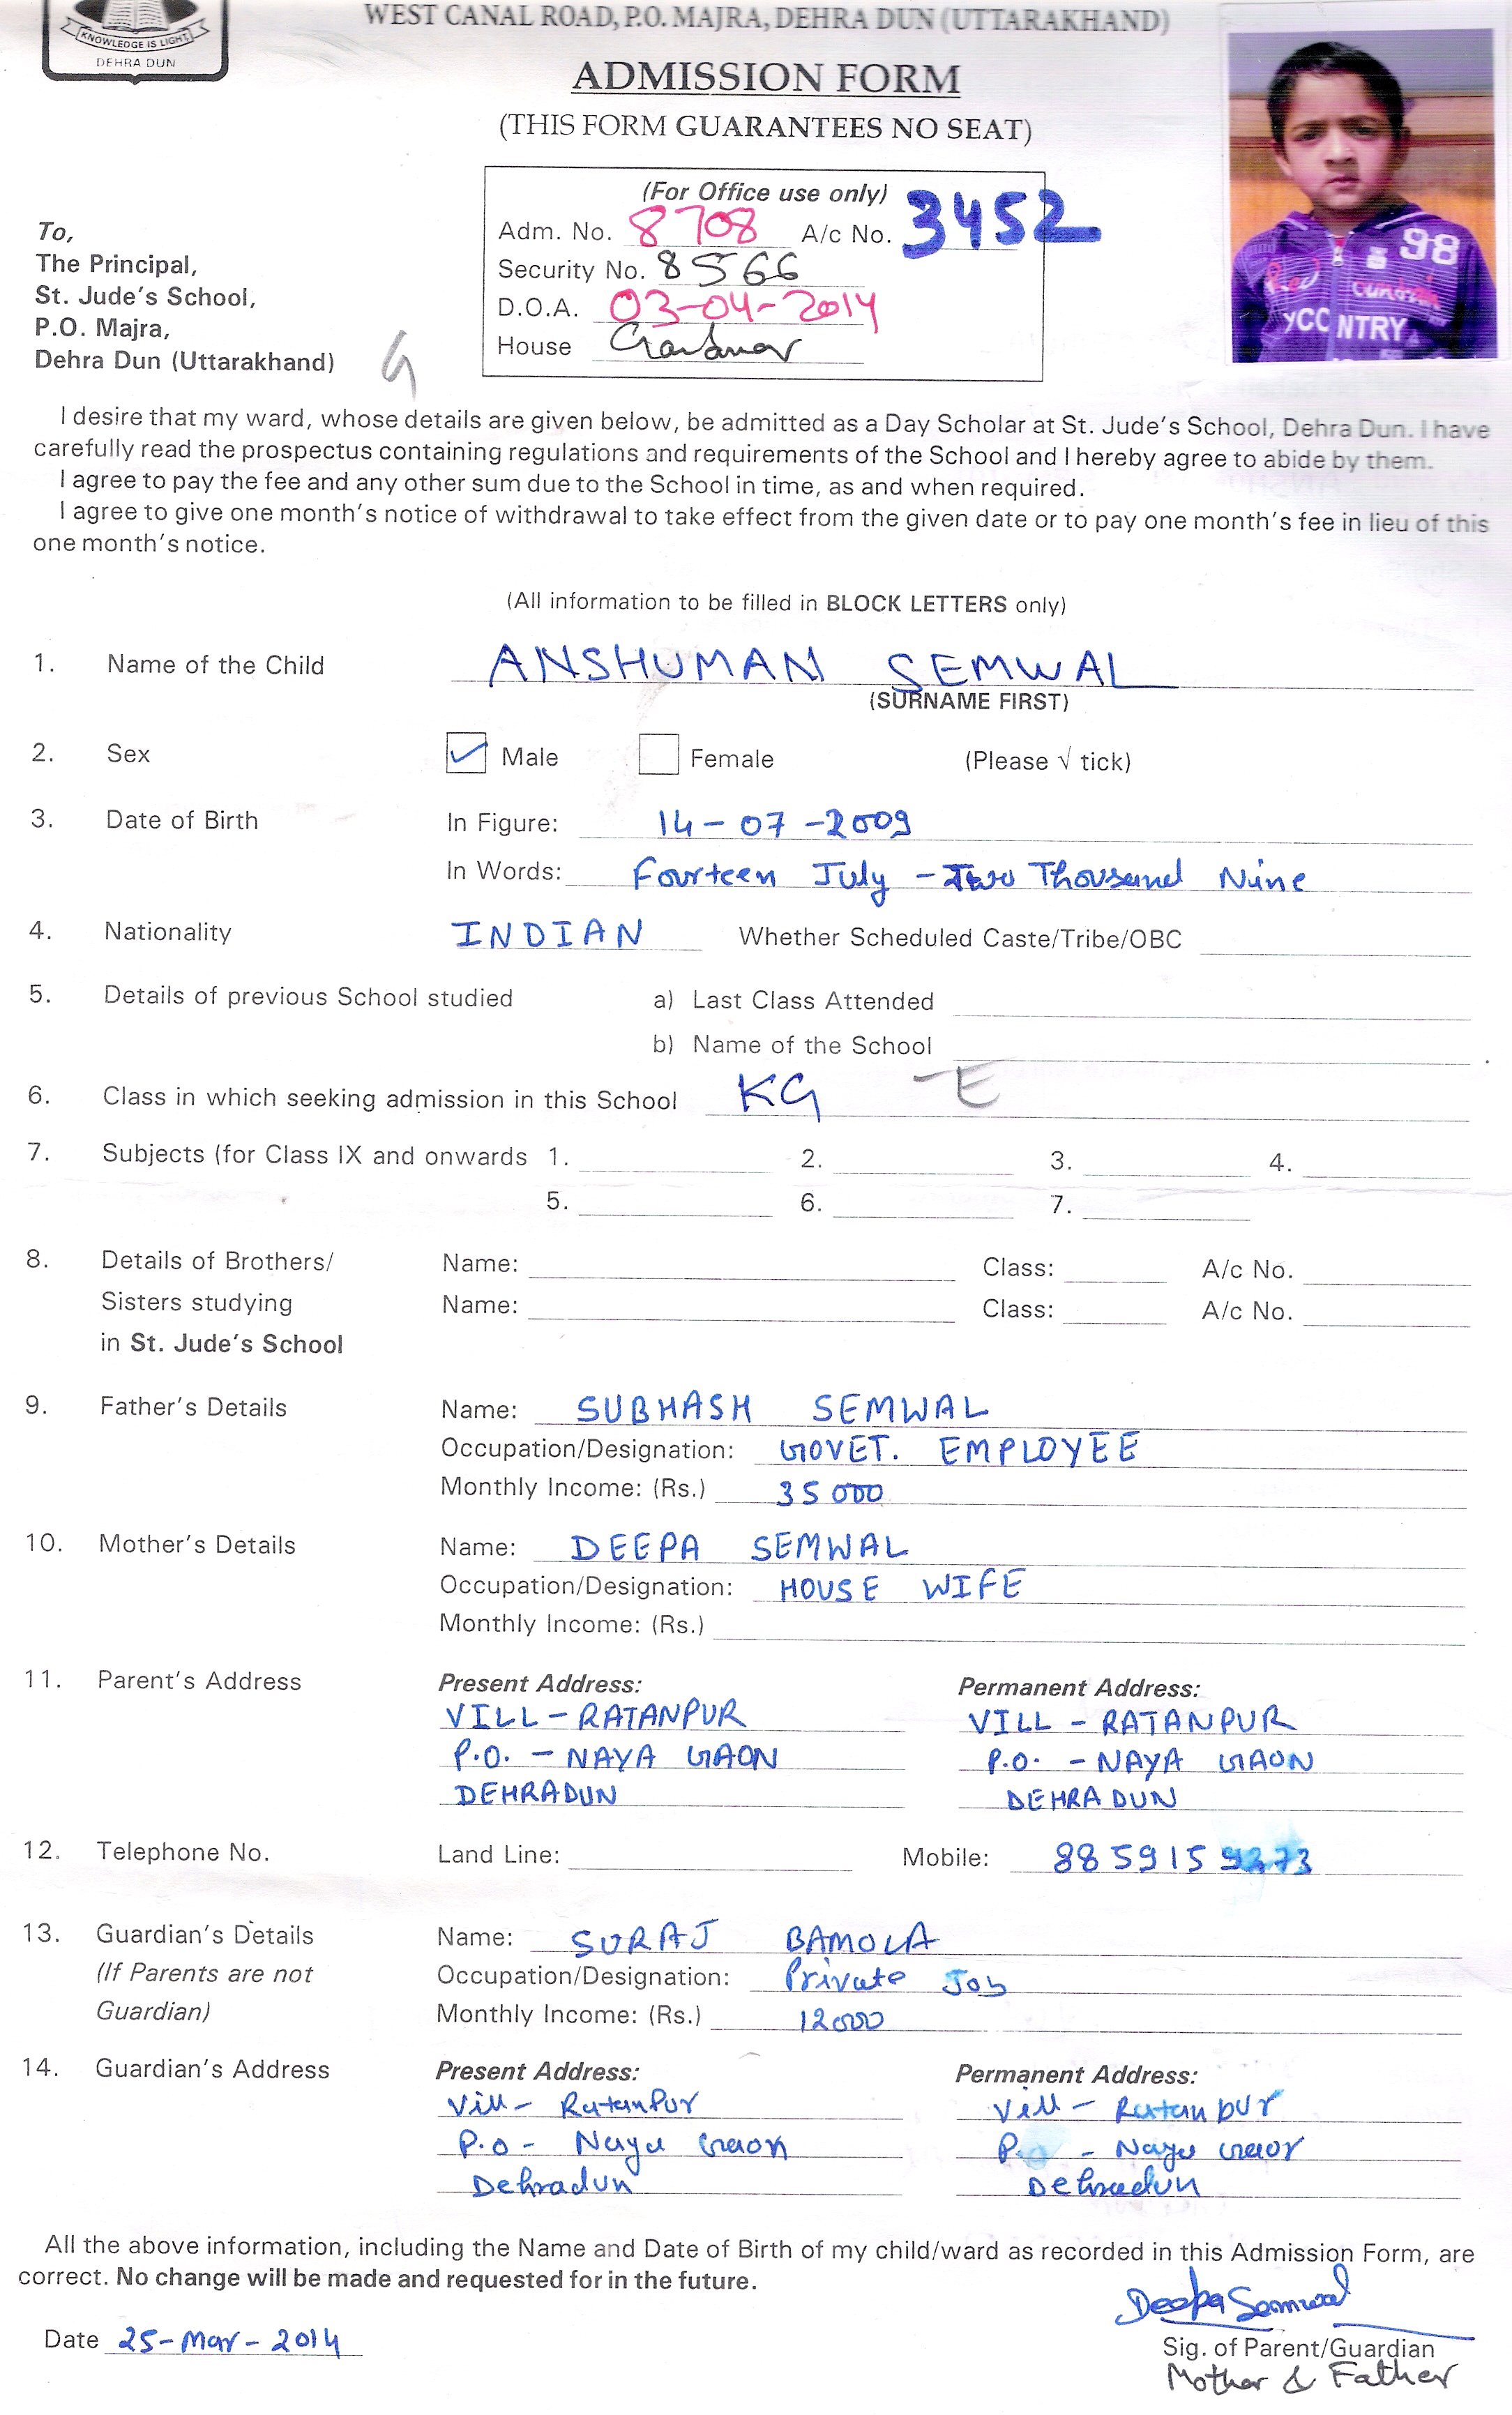 WEST CANAL ROAD, P.O. MAJRA, DEHRA DUN (UTTARAKHAND)
KNOWLEDGE IS LIGHT
DEHRA DUN
ADMISSION FORM
(THIS FORM GUARANTEES NO SEAT)
98
NTRY
(For Office use only)
Adm. No. 8708 A/c No. 3452
Security No. 8566
D.O.A. 03-04-2014
House
To,
The Principal,
St. Jude's School,
P.O. Majra,
Dehra Dun (Uttarakhand)
G
I desire that my ward, whose details are given below, be admitted as a Day Scholar at St. Jude's School, Dehra Dun. I have
carefully read the prospectus containing regulations and requirements of the School and I hereby agree to abide by them.
I agree to pay the fee and any other sum due to the School in time, as and when required.
I agree to give one month's notice of withdrawal to take effect from the given date or to pay one month's fee in lieu of this
one month's notice.
(All information to be filled in BLOCK LETTERS only)
1. Name of the Child ANSHUMAN SEMWAL
(SURNAME FIRST)
2. Sex ✓ Male Female (Please √ tick)
3. Date of Birth In Figure: 14-07-2009
In Words: Fourteen July - Two Thousand Nine
4. Nationality INDIAN Whether Scheduled Caste/Tribe/OBC
5. Details of previous School studied a) Last Class Attended
b) Name of the School
6. Class in which seeking admission in this School KG E
7. Subjects (for Class IX and onwards 1. 2. 3. 4.
5. 6. 7.
8. Details of Brothers/ Name: Class: A/c No.
Sisters studying Name: Class: A/c No.
in St. Jude's School
9. Father's Details Name: SUBHASH SEMWAL
Occupation/Designation: GOVET. EMPLOYEE
Monthly Income: (Rs.) 35000
10. Mother's Details Name: DEEPA SEMWAL
Occupation/Designation: HOUSE WIFE
Monthly Income: (Rs.)
11. Parent's Address Present Address: Permanent Address:
VILL - RATANPUR VILL - RATANPUR
P.O. - NAYA GAON P.O. - NAYA GAON
DEHRADUN DEHRADUN
12. Telephone No. Land Line: Mobile:
13. Guardian's Details Name: SURAJ BAMOLA
(If Parents are not Occupation/Designation: Private Job
Guardian) Monthly Income: (Rs.) 12000
14. Guardian's Address Present Address: Permanent Address:
Vill- Ratanpur Vill - Ratanpur
P.o - Naya Gaon P.o - Naya Gaon
Dehradun Dehradun
All the above information, including the Name and Date of Birth of my child/ward as recorded in this Admission Form, are
correct. No change will be made and requested for in the future.
Deepa Semwal
Date 25-Mar-2014
Sig. of Parent/Guardian
Mother & Father